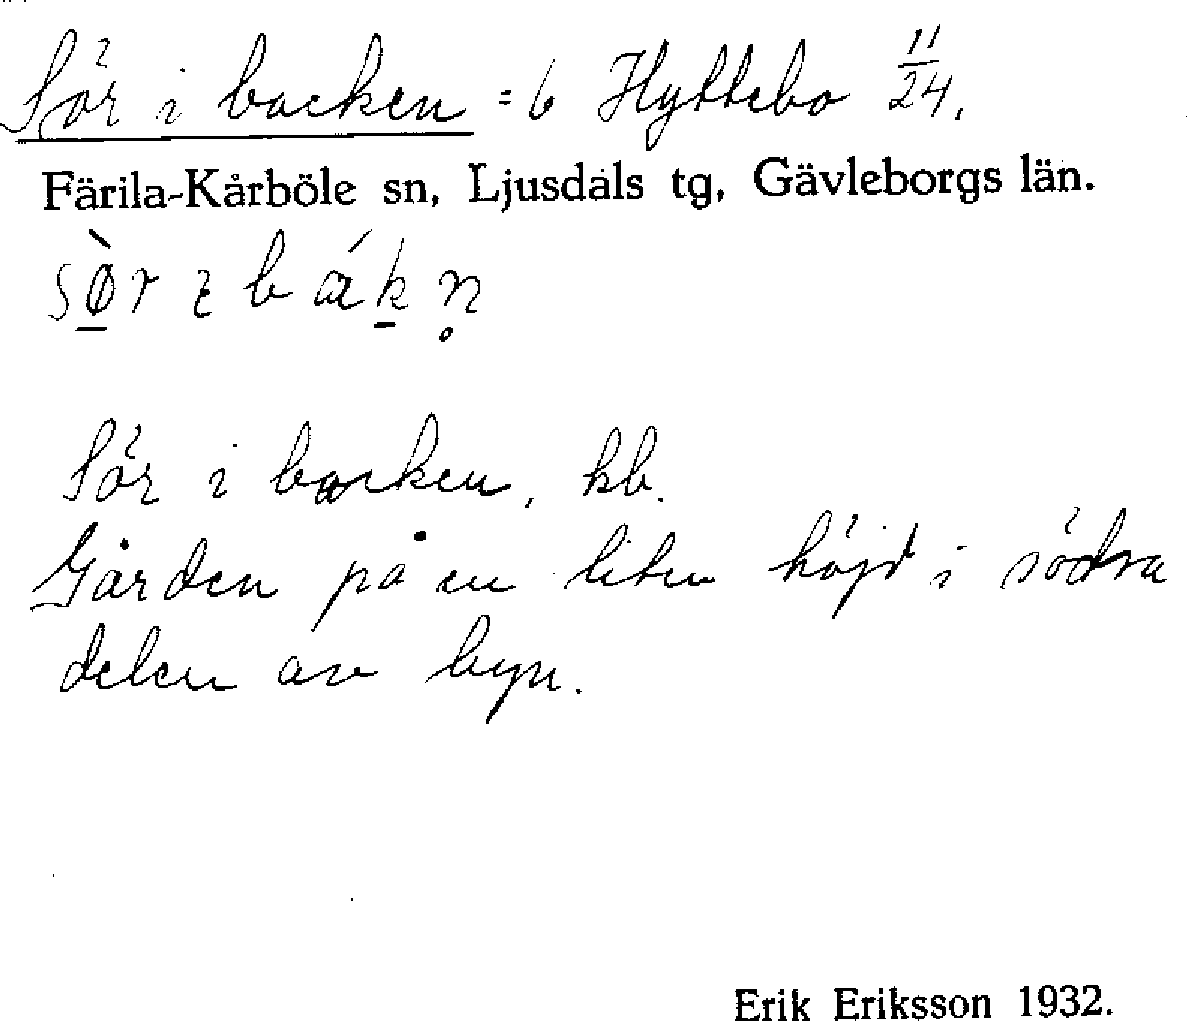 Sör i backen = 6 Hyttebo 11/24.
Färila-Kårböle sn, Ljusdals tg, Gävleborgs län.
sø̀r ɩ bák̠n̥
Sör i backen, kb.
Gården på en liten höjd i södra
delen av byn.
Erik Eriksson 1932.